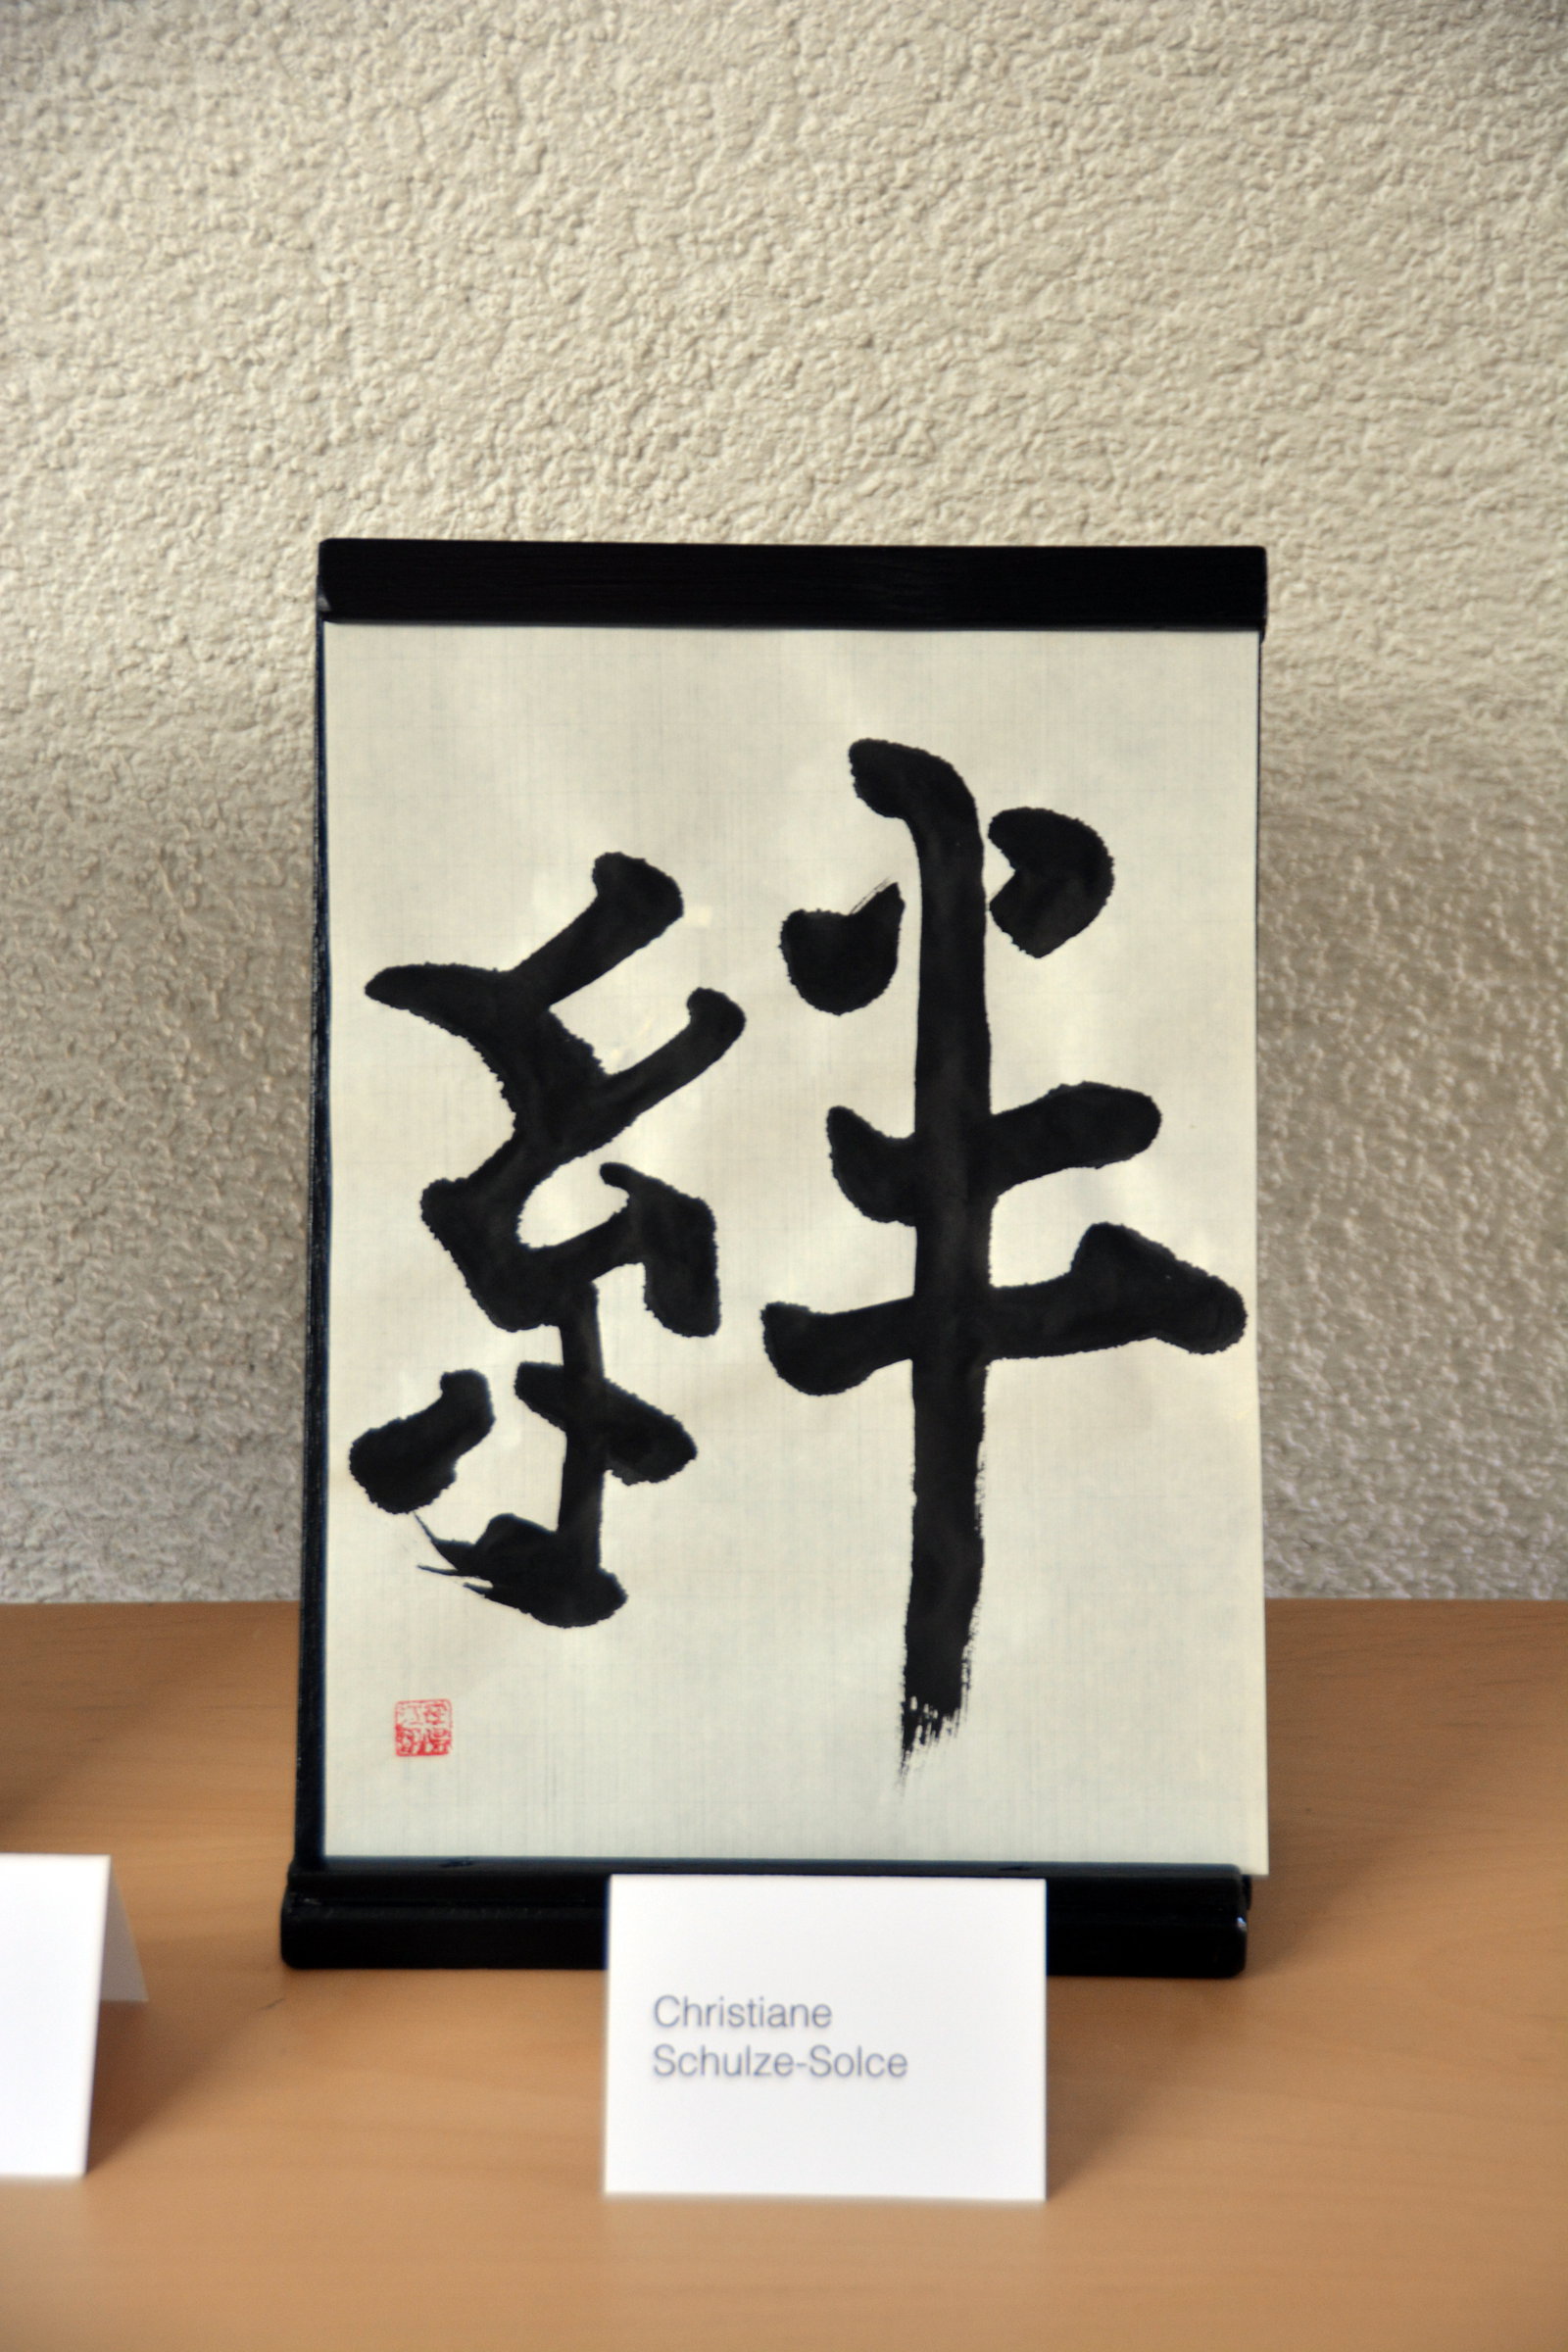 絆
Christiane
Schulze-Solce